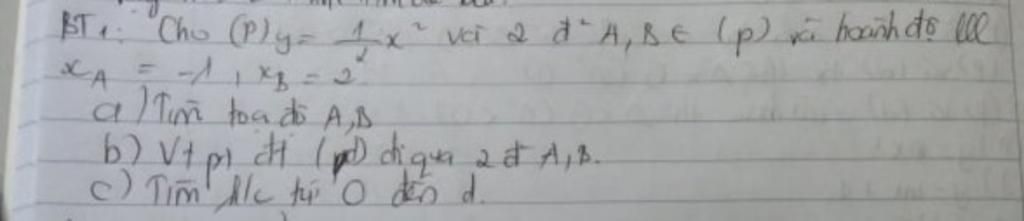 BT1: Cho (P) y = 1/2 x² với 2 đ² A, B ∈ (p) và hoành độ lll
x_A = -1, x_B = 2.
a) Tìm toạ độ A, B
b) Vt pt đt (d) đi qua 2 đ A, B.
c) Tìm k/c từ O đến d.